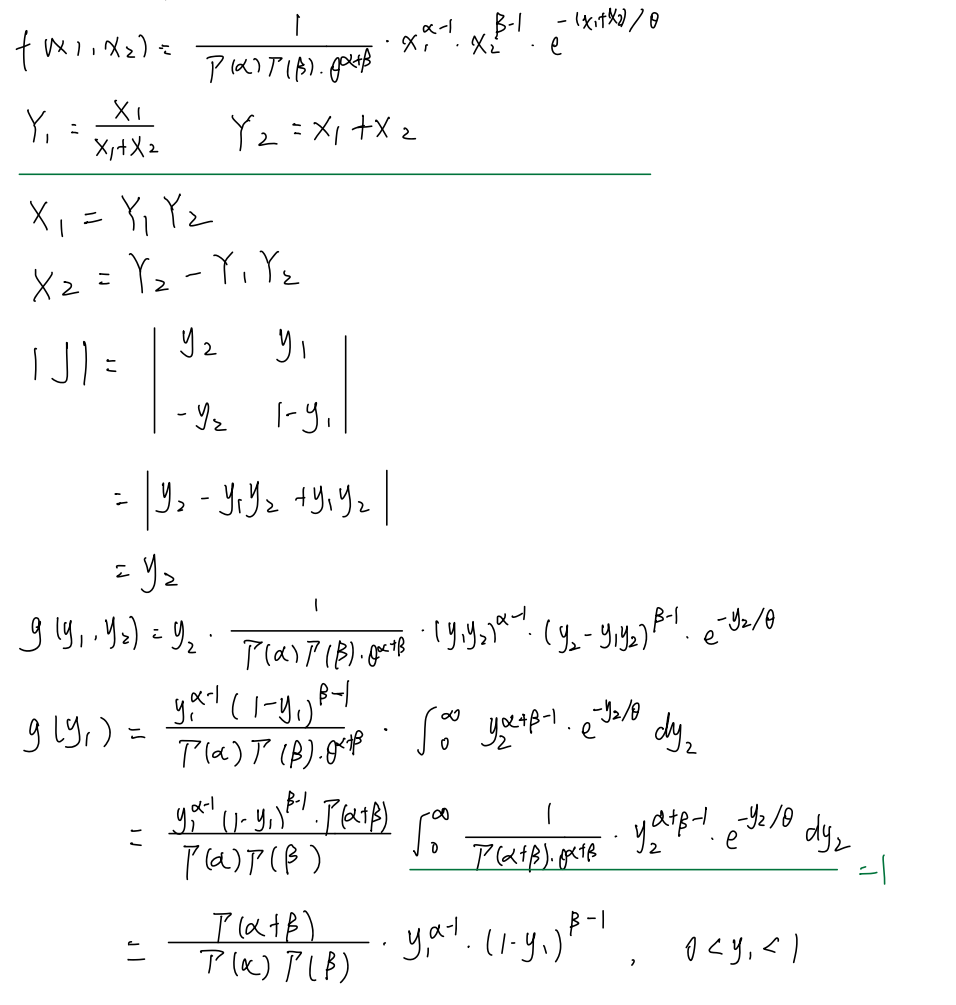 f(x₁, x₂) = 1 / (Γ(α)Γ(β)·θ^(α+β)) · x₁^(α-1) · x₂^(β-1) · e^(-(x₁+x₂)/θ)
Y₁ = X₁ / (X₁+X₂)    Y₂ = X₁ + X₂
X₁ = Y₁Y₂
X₂ = Y₂ - Y₁Y₂
|J| = | y₂  y₁ |
| -y₂  1-y₁ |
= |y₂ - y₁y₂ + y₁y₂|
= y₂
g(y₁, y₂) = y₂ · 1 / (Γ(α)Γ(β)·θ^(α+β)) · (y₁y₂)^(α-1) · (y₂ - y₁y₂)^(β-1) · e^(-y₂/θ)
g(y₁) = y₁^(α-1) (1-y₁)^(β-1) / (Γ(α)Γ(β)·θ^(α+β)) · ∫₀^∞ y₂^(α+β-1) · e^(-y₂/θ) dy₂
= y₁^(α-1) (1-y₁)^(β-1) · Γ(α+β) / (Γ(α)Γ(β)) ∫₀^∞ 1 / (Γ(α+β)·θ^(α+β)) · y₂^(α+β-1) · e^(-y₂/θ) dy₂ = 1
= Γ(α+β) / (Γ(α)Γ(β)) · y₁^(α-1) · (1-y₁)^(β-1) , 0 < y₁ < 1